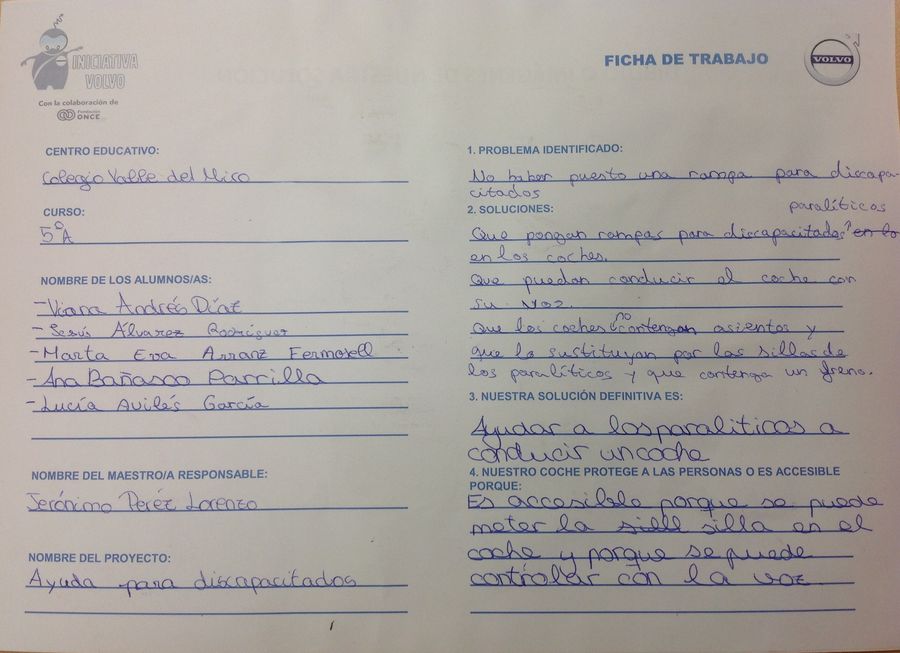 INICIATIVA
VOLVO
Con la colaboración de
Fundación
ONCE
FICHA DE TRABAJO
VOLVO
CENTRO EDUCATIVO:
Colegio Valle del Miro
CURSO:
5º A
NOMBRE DE LOS ALUMNOS/AS:
- Andrés Díaz
- Jesús Álvarez Rodríguez
- Marta Eva Arranz Fermosell
- Ana Bañasco Parrilla
- Lucía Avilés García
NOMBRE DEL MAESTRO/A RESPONSABLE:
Jerónimo Peréz Lorenzo
NOMBRE DEL PROYECTO:
Ayuda para discapacitados
1. PROBLEMA IDENTIFICADO:
No haber puesto una rampa para discapa-
citados
2. SOLUCIONES:
paralíticos
Que pongan rampas para discapacitados en lo
en los coches.
Que puedan conducir el coche con
su voz.
Que los coches no contengan asientos y
que lo sustituyan por las sillas de
los paralíticos y que contenga un freno.
3. NUESTRA SOLUCIÓN DEFINITIVA ES:
Ayudar a los paraliticos a
conducir un coche
4. NUESTRO COCHE PROTEGE A LAS PERSONAS O ES ACCESIBLE
PORQUE:
Es accesible porque se puede
meter la siell silla en el
coche y porque se puede
controlar con la voz.